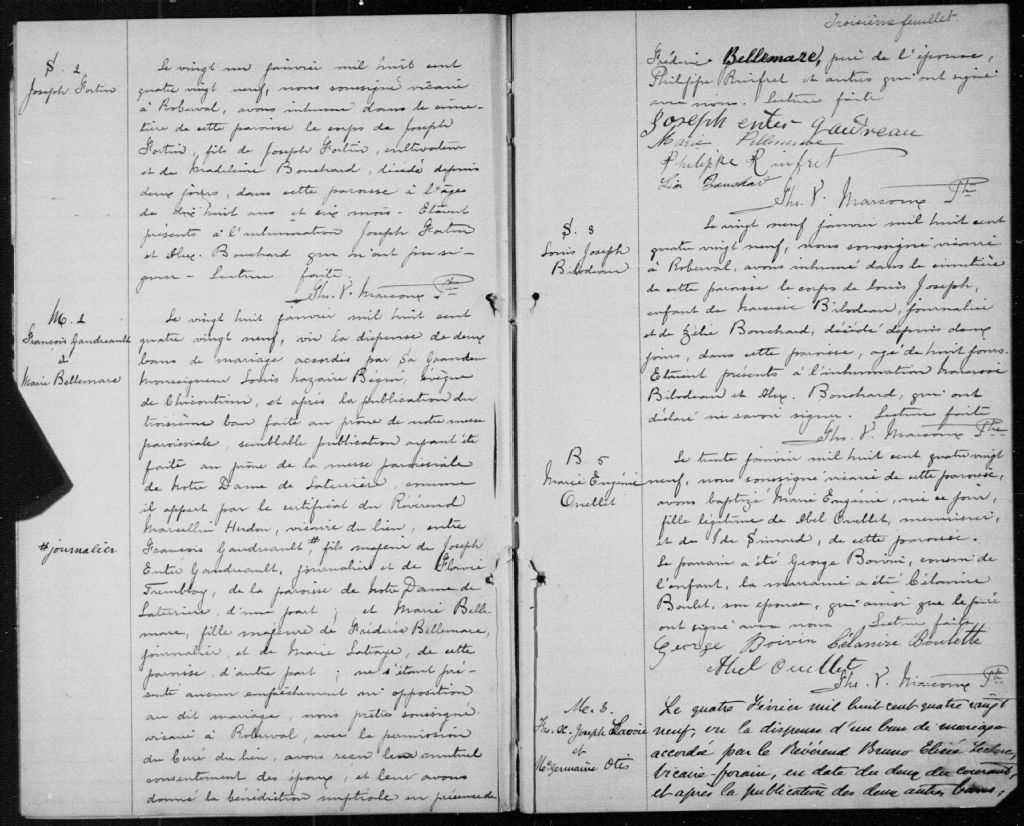 S. 2
Joseph Fortin
Le vingt un janvier mil huit cent
quatre vingt neuf, nous soussigné vicaire
à Roberval, avons inhumé dans le cime-
tière de cette paroisse le corps de Joseph
Fortin, fils de Joseph Fortin, cultivateur
et de Madeleine Bouchard, décédé depuis
deux jours, dans cette paroisse à l'âge
de dix huit ans et six mois. Etaient
présents à l'inhumation Joseph Fortin
et Alex. Bouchard qui n'ont pu si-
gner. Lecture faite.
Ths. V. Marcoux Ptre
M. 2
François Gaudreault
et
Marie Bellemare
Le vingt huit janvier mil huit cent
quatre vingt neuf, vu la dispense de deux
bans de mariage accordés par Sa Grandeur
Monseigneur Louis Nazaire Bégin, évêque
de Chicoutimi, et après la publication du
troisième ban faite au prône de notre messe
paroissiale, semblable publication ayant été
faite au prône de la messe paroissiale
de Notre Dame de Laterrière, comme
il appert par le certificat du Révérend
Marcellin Hudon, vicaire du lieu, entre
#journalier
François Gaudreault,# fils majeur de Joseph
Enter Gaudreault, journalier et de Flavie
Tremblay, de la paroisse de Notre Dame de
Laterrière, d'une part ; et Marie Belle-
mare, fille majeure de Fréderic Bellemare,
journalier, et de Marie , de cette
paroisse, d'autre part ; ne s'étant pré-
senté aucun empêchement ni opposition
au dit mariage, nous prêtre soussigné
vicaire à Roberval, avec la permission
du Curé du lieu, avons reçu leur mutuel
consentement des époux, et leur avons
donné la bénédiction nuptiale en présence de
Troisième feuillet
Fréderic Bellemare, père de l'épouse,
Philippe Rinfret et autres qui ont signé
avec nous. Lecture faite
Joseph enter gaudreau
Marie Bellemare
Philippe Rinfret
Ths. V. Marcoux Ptre
S. 3
Louis Joseph
Bilodeau
Le vingt neuf janvier mil huit cent
quatre vingt neuf, nous soussigné vicaire
à Roberval, avons inhumé dans le cimetière
de cette paroisse le corps de Louis Joseph,
enfant de Narcisse Bilodeau, journalier
et de Zélie Bouchard, décédé depuis deux
jours, dans cette paroisse, agé de huit jours.
Etaient présents à l'inhumation Narcisse
Bilodeau et Alex. Bouchard, qui ont
déclaré ne savoir signer. Lecture faite
Ths. V. Marcoux Ptre
B. 5
Marie Eugénie
Ouellet
Le trente janvier mil huit cent quatre vingt
neuf, nous soussigné vicaire de cette paroisse,
avons baptizé Marie Eugénie, née ce jour,
fille légitime de Abel Ouellet, menuisier,
et de Ida Simard, de cette paroisse.
Le parrain a été George Boivin, cousin de
l'enfant, la marraine a été Célanire
Boulet, son épouse, qui ainsi que le père
ont signé avec nous. Lecture faite
George Boivin Célanire Boulette
Abel Ouellet
Ths. V. Marcoux Ptre
M. 3.
Frs. X. Joseph Lavoie
et
Mie Germaine Otis
Le quatre Février mil huit cent quatre vingt
neuf, vu la dispense d'un ban de mariage
accordé par le Révérend Bruno Elisée Leclerc,
vicaire-forain, en date du deux du courant,
et après la publication des deux autres bans,